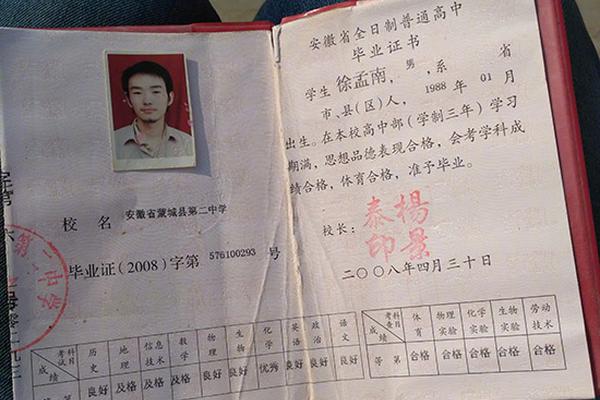 校 名 安徽省蒙城县第二中学
毕业证(2008)字第 576100293 号
第二中学
考试科目 历史 地理 信息技术 数学 物理 生物 化学 英语 政治 语文
成绩 良好 及格 及格 及格 良好 良好 优秀 良好 良好 良好
安徽省全日制普通高中
毕业证书
学生 徐孟南，男，系 省
市、县(区)人，1988 年 01 月
出生。在本校高中部(学制三年)学习
期满，思想品德表现合格，会考学科成
绩合格，体育合格，准予毕业。
校长：
楊景泰印
二〇〇八年四月三十日
考查科目 体育 物理实验 化学实验 生物实验 劳动技术
成绩 等第 合格 合格 合格 合格 合格